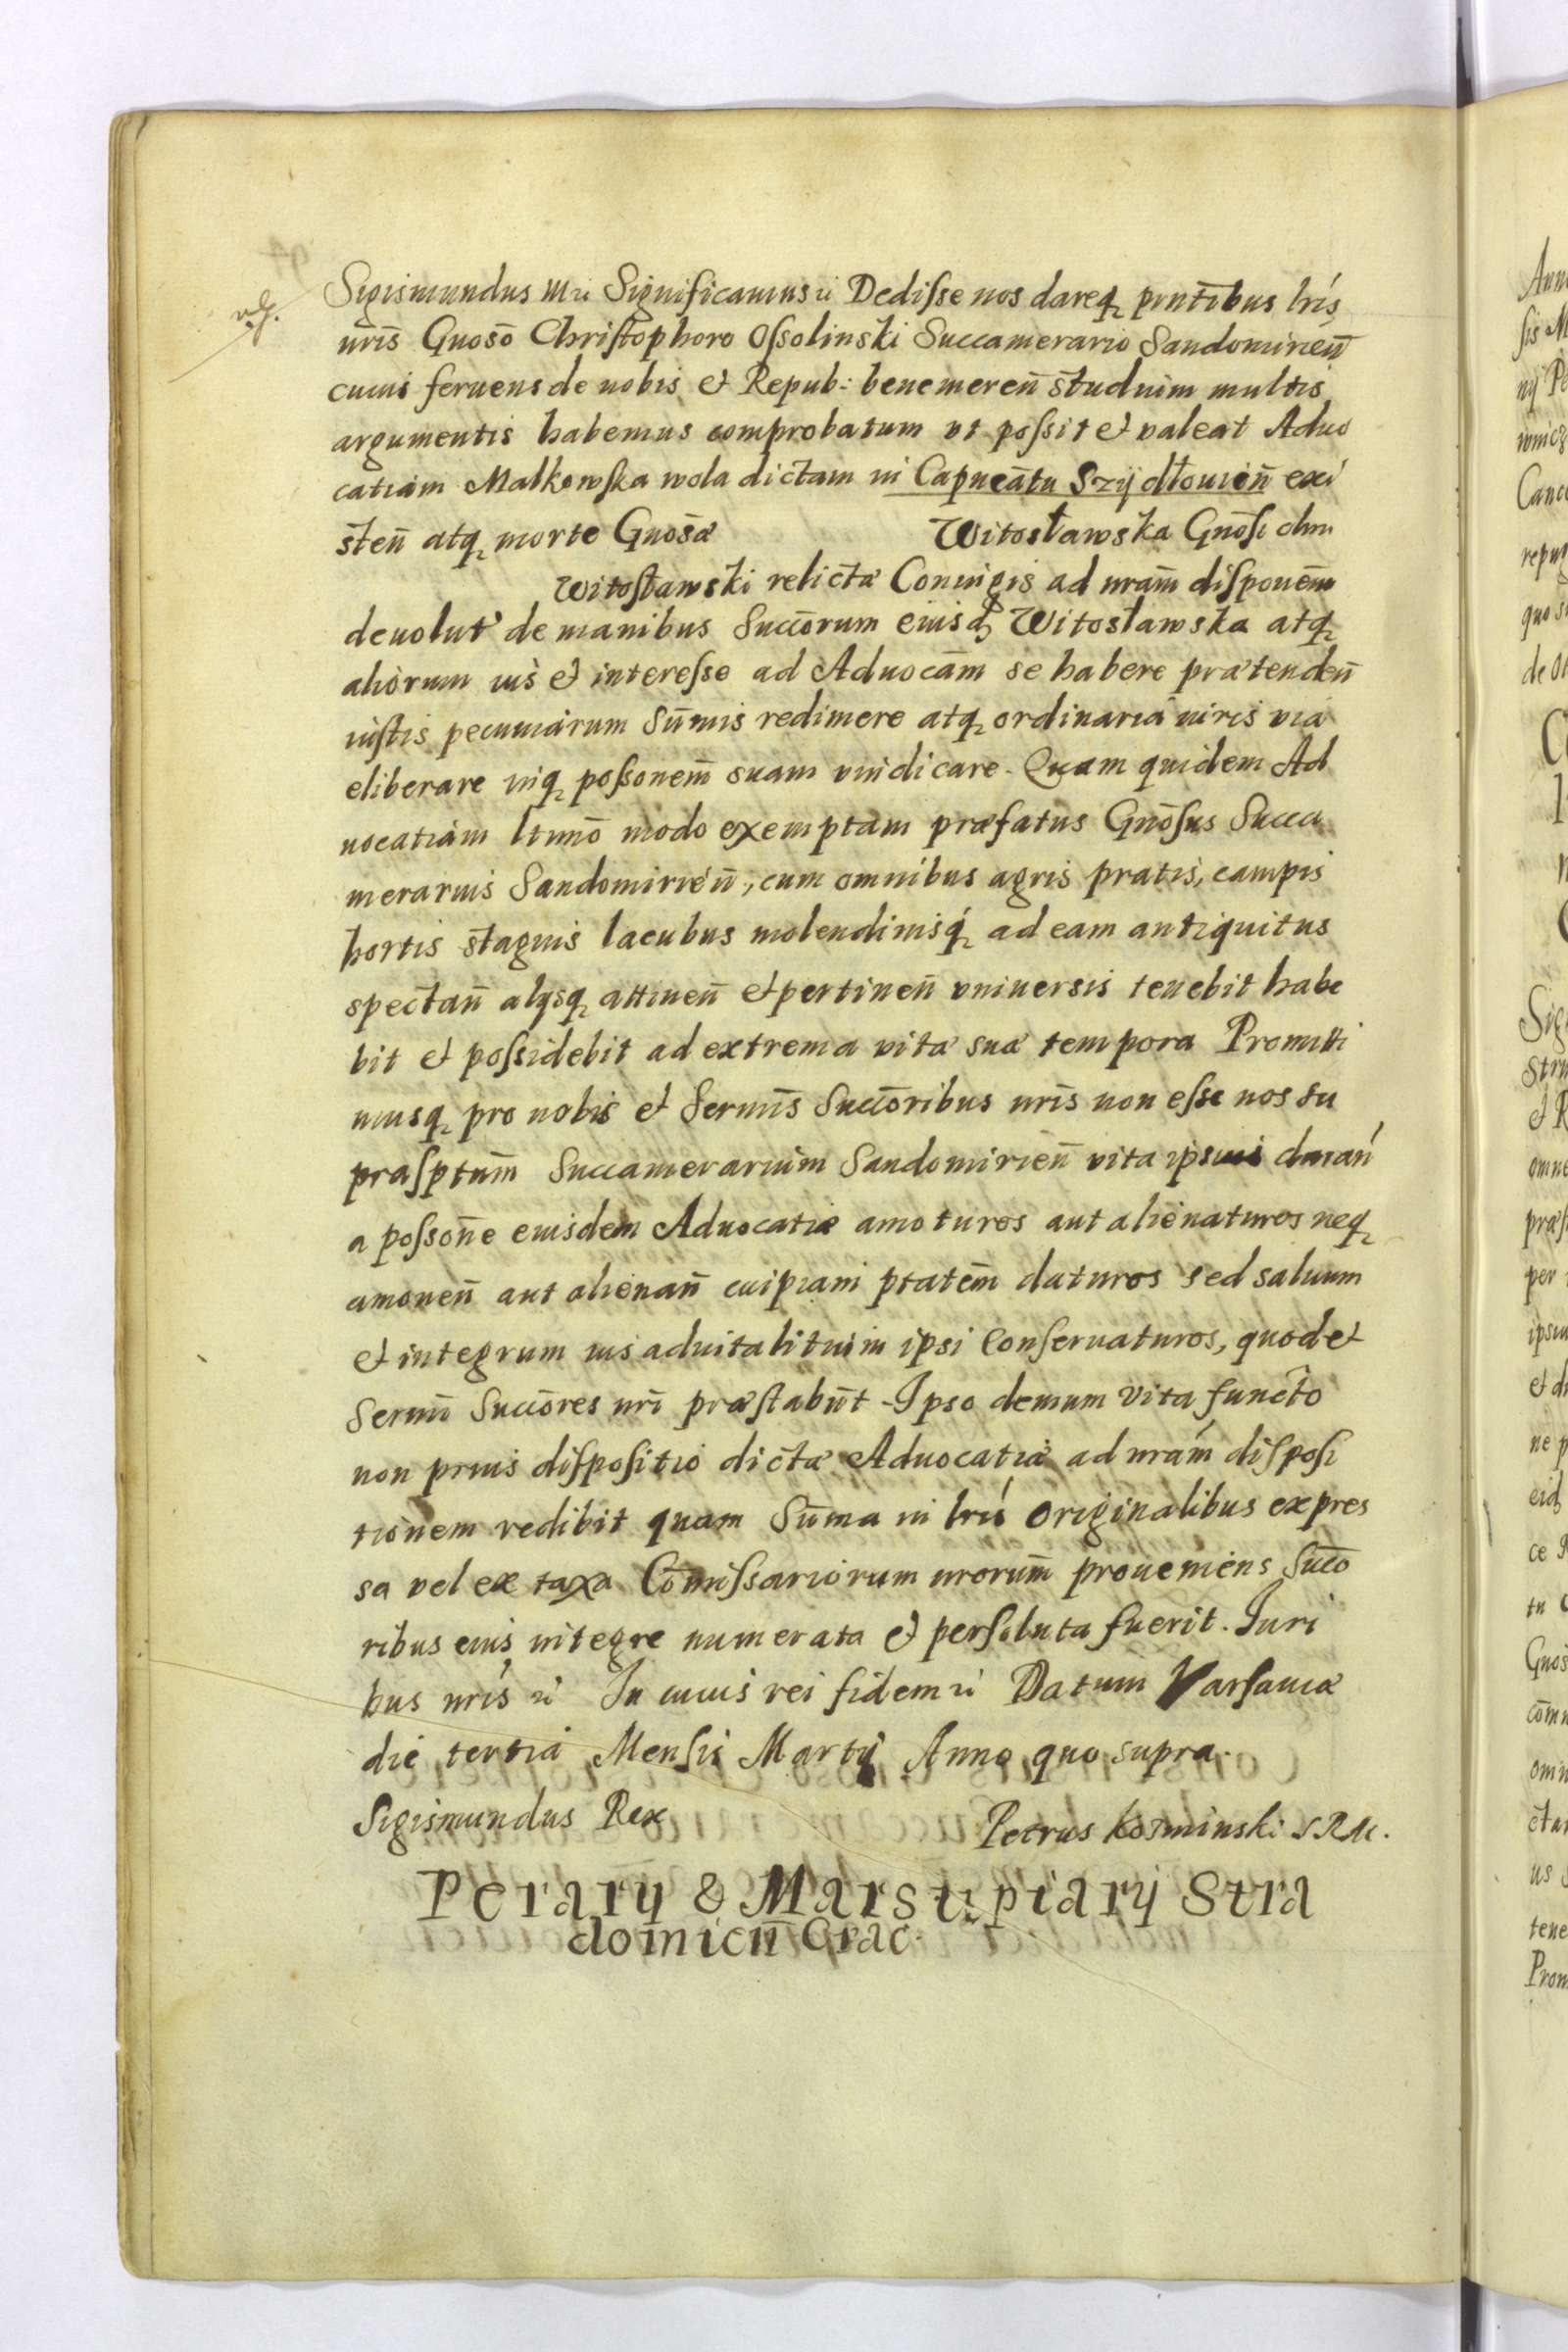 Sigismundus III ει Significamus ει Dedisse nos dareq pntibus lris
nris Gnoso Christophoro Ossolinski Succamerario Sandomirien̄
cuius feruens de nobis et Repub: benemeren̄ studium multis
argumentis habemus comprobatum vt possit et valeat Aduo
catiam Malkowska wola dictam in Capneātu Szÿdłouien̄ exi
sten̄ atq morte Gnosæ Witosławska Gnosi olim
Witosławski relictæ Coniugis ad nram̄ disponem̄
deuolut de manibus Succorum eiusd Witosławska atq
aliorum ius et interesse ad Aduocam̄ se habere prætenden̄
iustis pecuniarum sum̄is redimere atq ordinaria iuris via
eliberare inq possonem̄ suam vindicare. Quam quidem Ad
uocatiam ltimo modo exemptam præfatus Gnosus Succa
merarius Sandomirien̄, cum omnibus agris pratis, campis
hortis stagnis lacubus molendinisq ad eam antiquitus
spectan̄ alijsq attinen̄ et pertinen̄ vniuersis tenebit habe
bit et possidebit ad extrema vitæ suæ tempora Promitti
musq pro nobis et Sermis Succoribus nris non esse nos su
prasptum̄ Succamerarium Sandomirien̄ vita ipsius duran̄
a possone eiusdem Aduocatiæ amoturos aut alienaturos neq
amouen̄ aut alienan̄ cuipiam ptatem̄ daturos sed saluum
et integrum ius aduitalitium ipsi conseruaturos, quod et
Sermi Succores nri præstabunt. Ipso demum vita functo
non prius dispositio dictæ Aduocatiæ ad nram̄ disposi
tionem redibit quam Sum̄a in lris originalibus expres
sa vel ex taxa Com̄issariorum nrorum̄ proueniens Succo
ribus eius integre numerata et persoluta fuerit. Iuri
bus nris ει In cuius rei fidem ει Datum Varsauiæ
die tertia Mensis Martÿ Anno quo supra.
Sigismundus Rex Petrus Kosminski S R M.
Perarÿ & Marsupiarÿ Stra
domien̄ Crac.